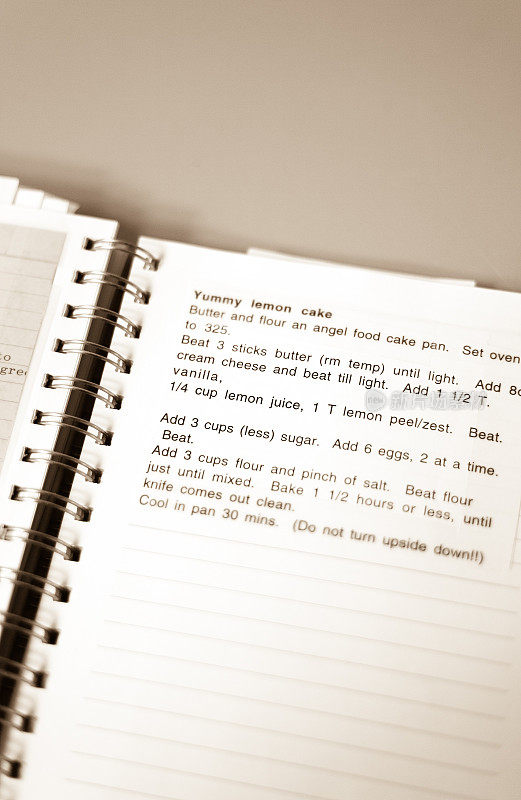 to
gree
Yummy lemon cake
Butter and flour an angel food cake pan. Set oven
to 325.
Beat 3 sticks butter (rm temp) until light. Add 8o
cream cheese and beat till light. Add 1 1/2 T.
vanilla,
1/4 cup lemon juice, 1 T lemon peel/zest. Beat.
Add 3 cups (less) sugar. Add 6 eggs, 2 at a time.
Beat.
Add 3 cups flour and pinch of salt. Beat flour
just until mixed. Bake 1 1/2 hours or less, until
knife comes out clean.
Cool in pan 30 mins. (Do not turn upside down!!)